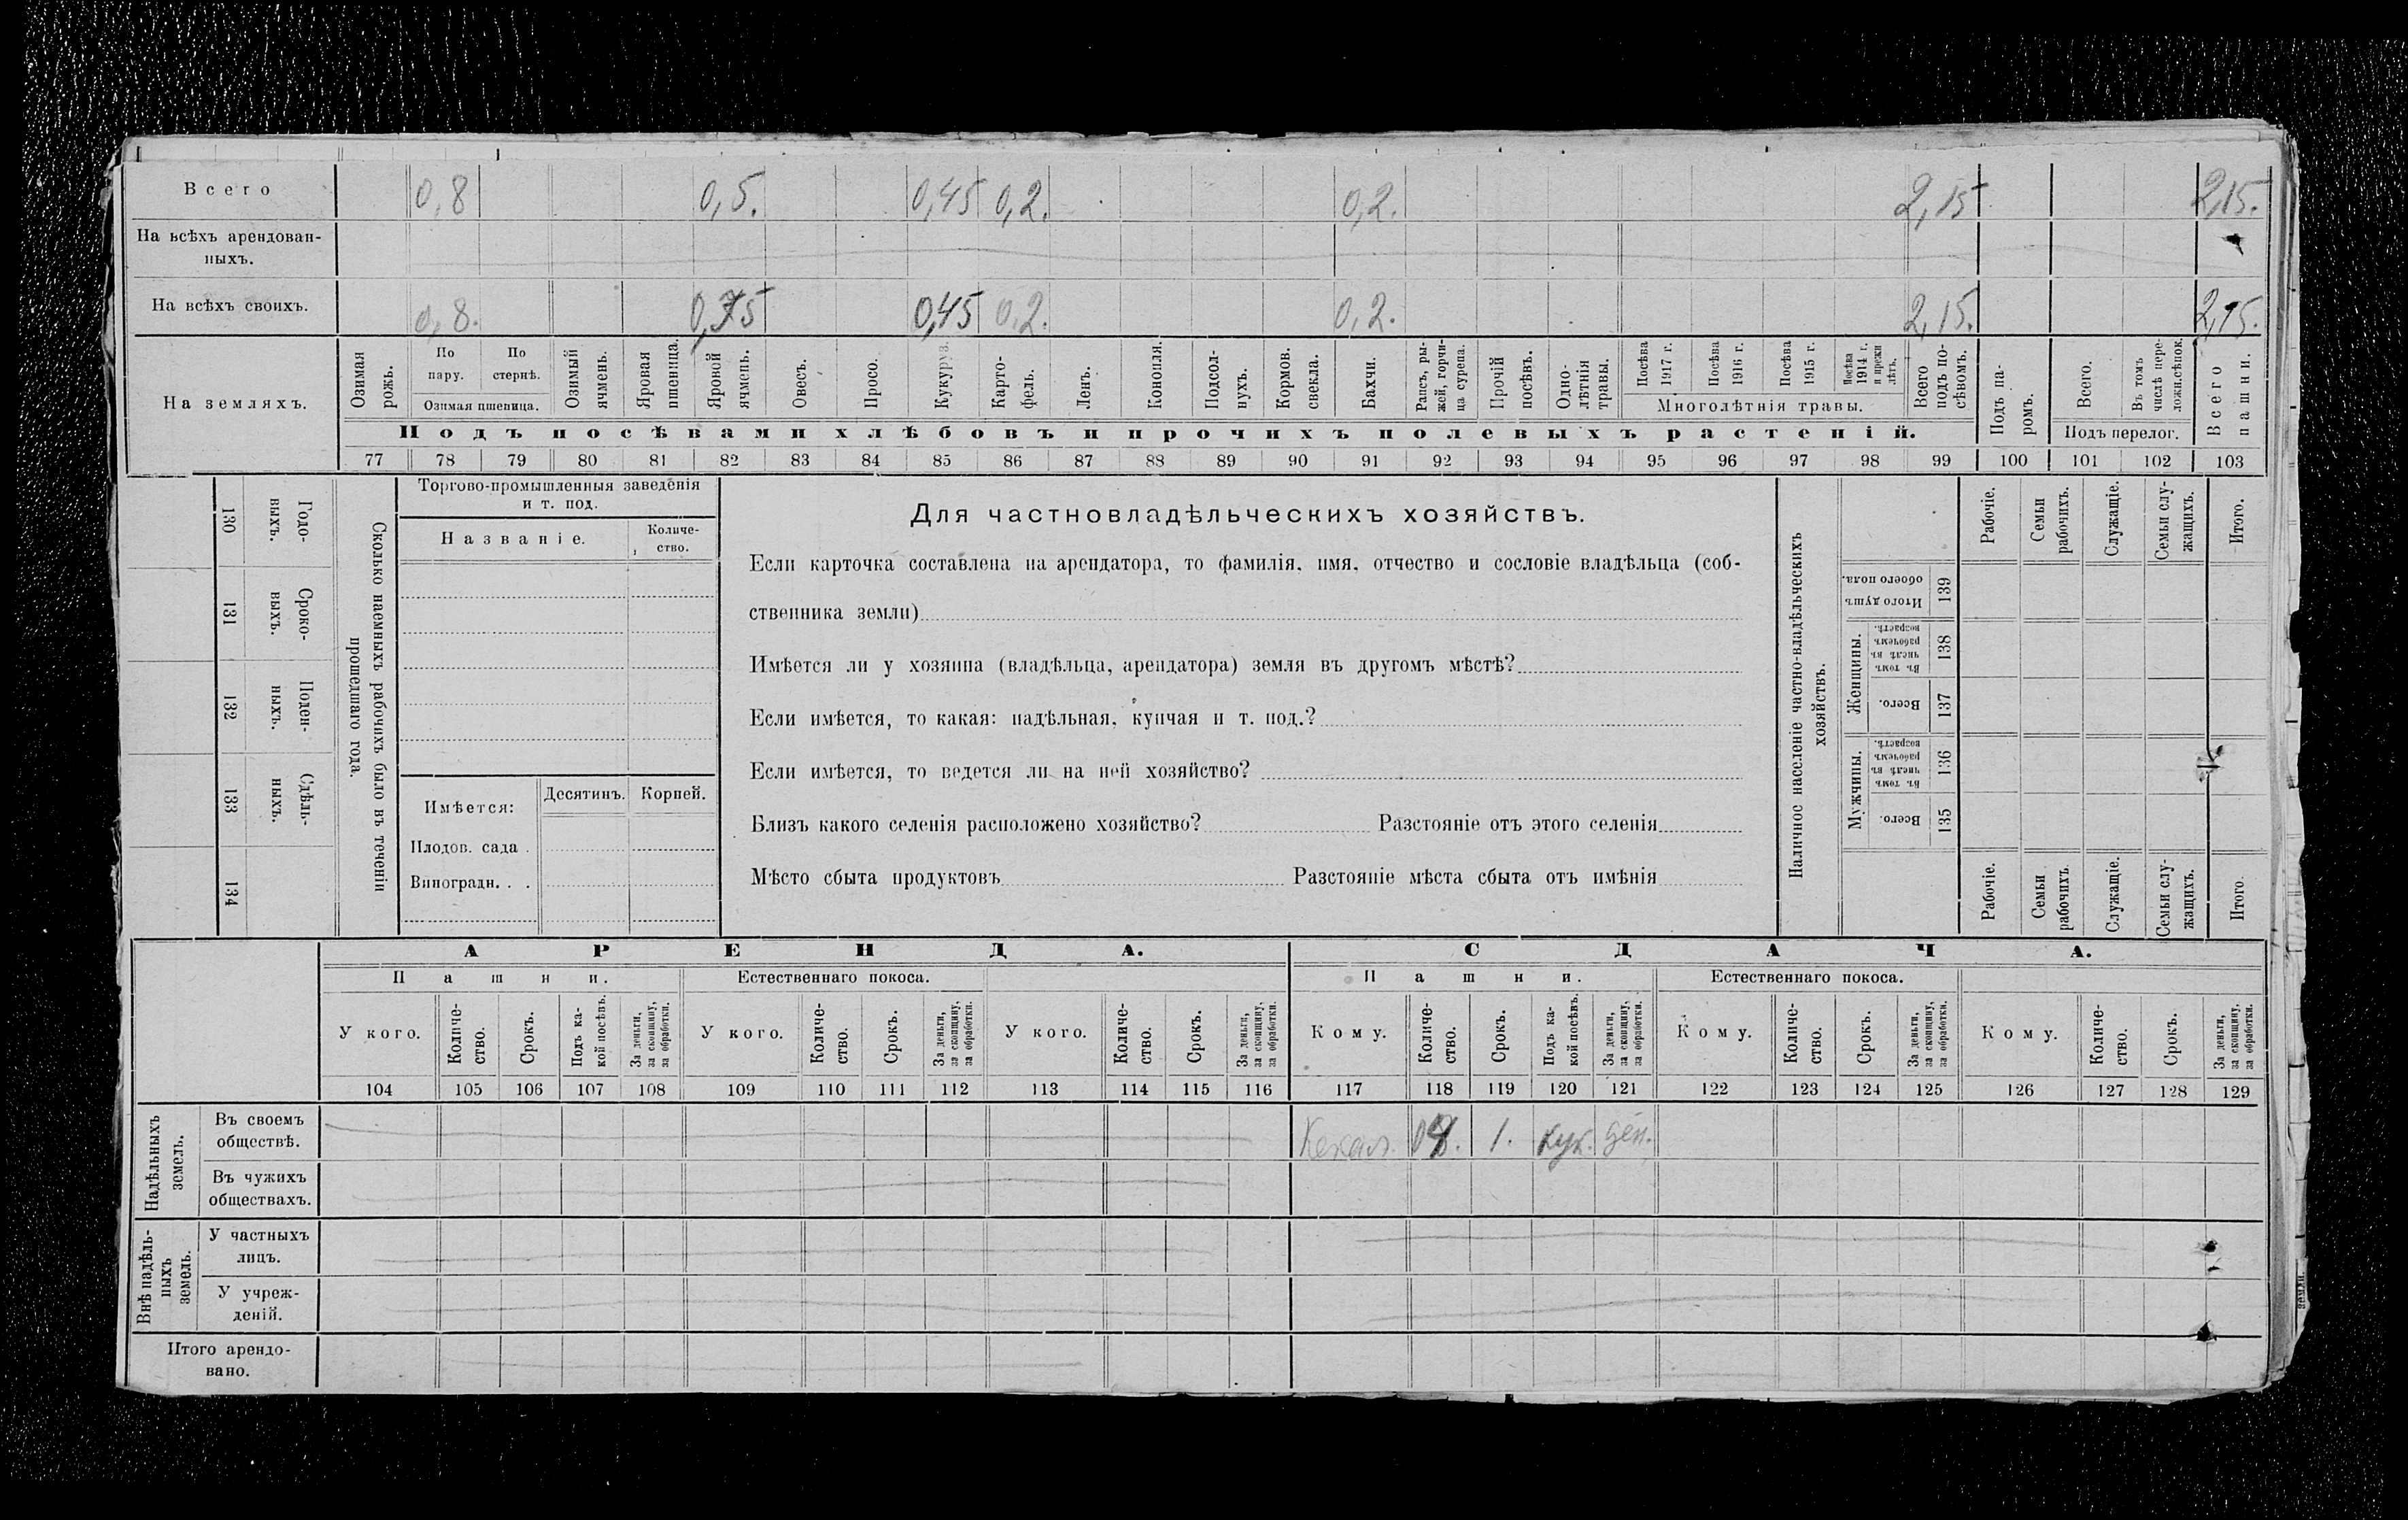 Всего 0,8 0,5. 0,45 0,2. 0,2. 2,15 2,15.
На всѣхъ арендован-
ныхъ.
На всѣхъ своихъ. 0,8. 0,45 0,2. 0,2. 2,15. 2,15.
На земляхъ.
Озимая рожь.
По пару.
По стернѣ.
Озимая пшеница.
Озимый ячмень.
Яровая пшеница.
Яровой ячмень.
Овесъ.
Просо.
Кукуруз.
Карто-
фель.
Ленъ.
Конопля.
Подсол-
нухъ.
Кормов.
свекла.
Бахчи.
Рапсъ, ры-
жей, горчи-
ца сурепа.
Прочій
посѣвъ.
Одно-
лѣтнія
травы.
Посѣва
1917 г.
Посѣва
1916 г.
Посѣва
1915 г.
Посѣва
1914 г.
и прежн
лѣтъ.
Многолѣтнія травы.
Всего
подъ по-
сѣвомъ.
Подъ па-
ромъ.
Всего.
Въ томъ
числѣ пере-
ложн.сѣнок.
Подъ перелог.
Всего
пашни.
Подъ посѣвами хлѣбовъ и прочихъ полевыхъ растеній.
77 78 79 80 81 82 83 84 85 86 87 88 89 90 91 92 93 94 95 96 97 98 99 100 101 102 103
130 Годо-
выхъ.
131 Сроко-
выхъ.
132 Поден-
ныхъ.
133 Сдѣль-
ныхъ.
134
Сколько наемныхъ рабочихъ было въ теченіи
прошедшаго года.
Торгово-промышленныя заведенія
и т. под.
Названіе.
Количе-
ство.
Имѣется:
Десятинъ.
Корней.
Плодов. сада .
Виноградн. . .
Для частновладѣльческихъ хозяйствъ.
Если карточка составлена на арендатора, то фамилія, имя, отчество и сословіе владѣльца (соб-
ственника земли)
Имѣется ли у хозяина (владѣльца, арендатора) земля въ другомъ мѣстѣ?
Если имѣется, то какая: надѣльная, купчая и т. под.?
Если имѣется, то ведется ли на ней хозяйство?
Близъ какого селенія расположено хозяйство? Разстояніе отъ этого селенія
Мѣсто сбыта продуктовъ Разстояніе мѣста сбыта отъ имѣнія
Наличное населеніе частно-владѣльческихъ
хозяйствъ.
Рабочіе.
Семьи
рабочихъ.
Служащіе.
Семьи слу-
жащихъ.
Итого.
Итого душъ
обоего пола. 139
Женщины.
Въ томъ
числѣ въ
рабочемъ
возрастѣ. 138
Всего. 137
Мужчины.
Въ томъ
числѣ въ
рабочемъ
возрастѣ. 136
Всего. 135
Рабочіе.
Семьи
рабочихъ.
Служащіе.
Семьи слу-
жащихъ.
Итого.
АРЕНДА. СДАЧА.
Пашни. Естественнаго покоса. Пашни. Естественнаго покоса.
У кого.
Количе-
ство.
Срокъ.
Подъ ка-
кой посѣвъ.
За деньги,
за скопщину,
за обработки.
У кого.
Количе-
ство.
Срокъ.
За деньги,
за скопщину,
за обработки.
У кого.
Количе-
ство.
Срокъ.
За деньги,
за скопщину,
за обработки.
Кому.
Количе-
ство.
Срокъ.
Подъ ка-
кой посѣвъ.
За деньги,
за скопщину,
за обработки.
Кому.
Количе-
ство.
Срокъ.
За деньги,
за скопщину,
за обработки.
Кому.
Количе-
ство.
Срокъ.
За деньги,
за скопщину,
за обработки.
104 105 106 107 108 109 110 111 112 113 114 115 116 117 118 119 120 121 122 123 124 125 126 127 128 129
Надѣльныхъ
земель.
Въ своемъ
обществѣ. 1. кук. ден.
Въ чужихъ
обществахъ.
Внѣ надѣль-
ныхъ
земель.
У частныхъ
лицъ.
У учреж-
деній.
Итого арендо-
вано.
земли.